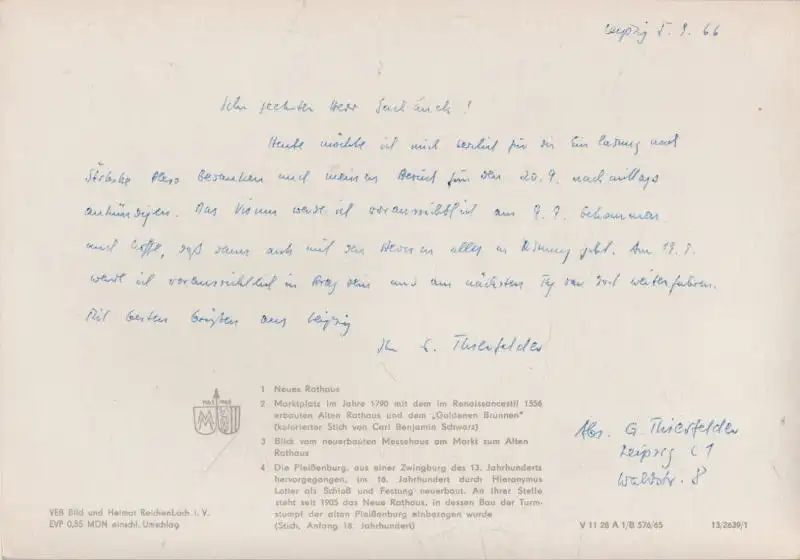 Leipzig 5. 9. 66
Sehr geehrter Herr !
Heute möchte ich mich herzlich für die Einladung nach
bedanken und meinen Besuch für den 20.9. nachmittags
ankündigen. Das Visum werde ich voraussichtlich am 9. 9. bekommen
und hoffe, daß dann auch mit den alles in Ordnung geht. Am 19. 9.
werde ich voraussichtlich in Prag sein und am nächsten Tag von dort weiterfahren.
Mit besten Grüßen aus Leipzig
Ihr G. Thierfelder
1165 1965
1 Neues Rathaus
2 Marktplatz im Jahre 1790 mit dem im Renaissancestil 1556
erbauten Alten Rathaus und dem „Goldenen Brunnen"
(kolorierter Stich von Carl Benjamin Schwarz)
3 Blick vom neuerbauten Messehaus am Markt zum Alten
Rathaus
4 Die Pleißenburg, aus einer Zwingburg des 13. Jahrhunderts
hervorgegangen, im 16. Jahrhundert durch Hieronymus
Lotter als Schloß und Festung neuerbaut. An ihrer Stelle
steht seit 1905 das Neue Rathaus, in dessen Bau der Turm-
stumpf der alten Pleißenburg einbezogen wurde
(Stich, Anfang 18. Jahrhundert)
Abs. G. Thierfelder
Leipzig C 1
Waldstr. 8
VEB Bild und Heimat Reichenbach i. V.
EVP 0,55 MDN einschl. Umschlag
V 11 28 A 1/B 576/65
13/2639/1